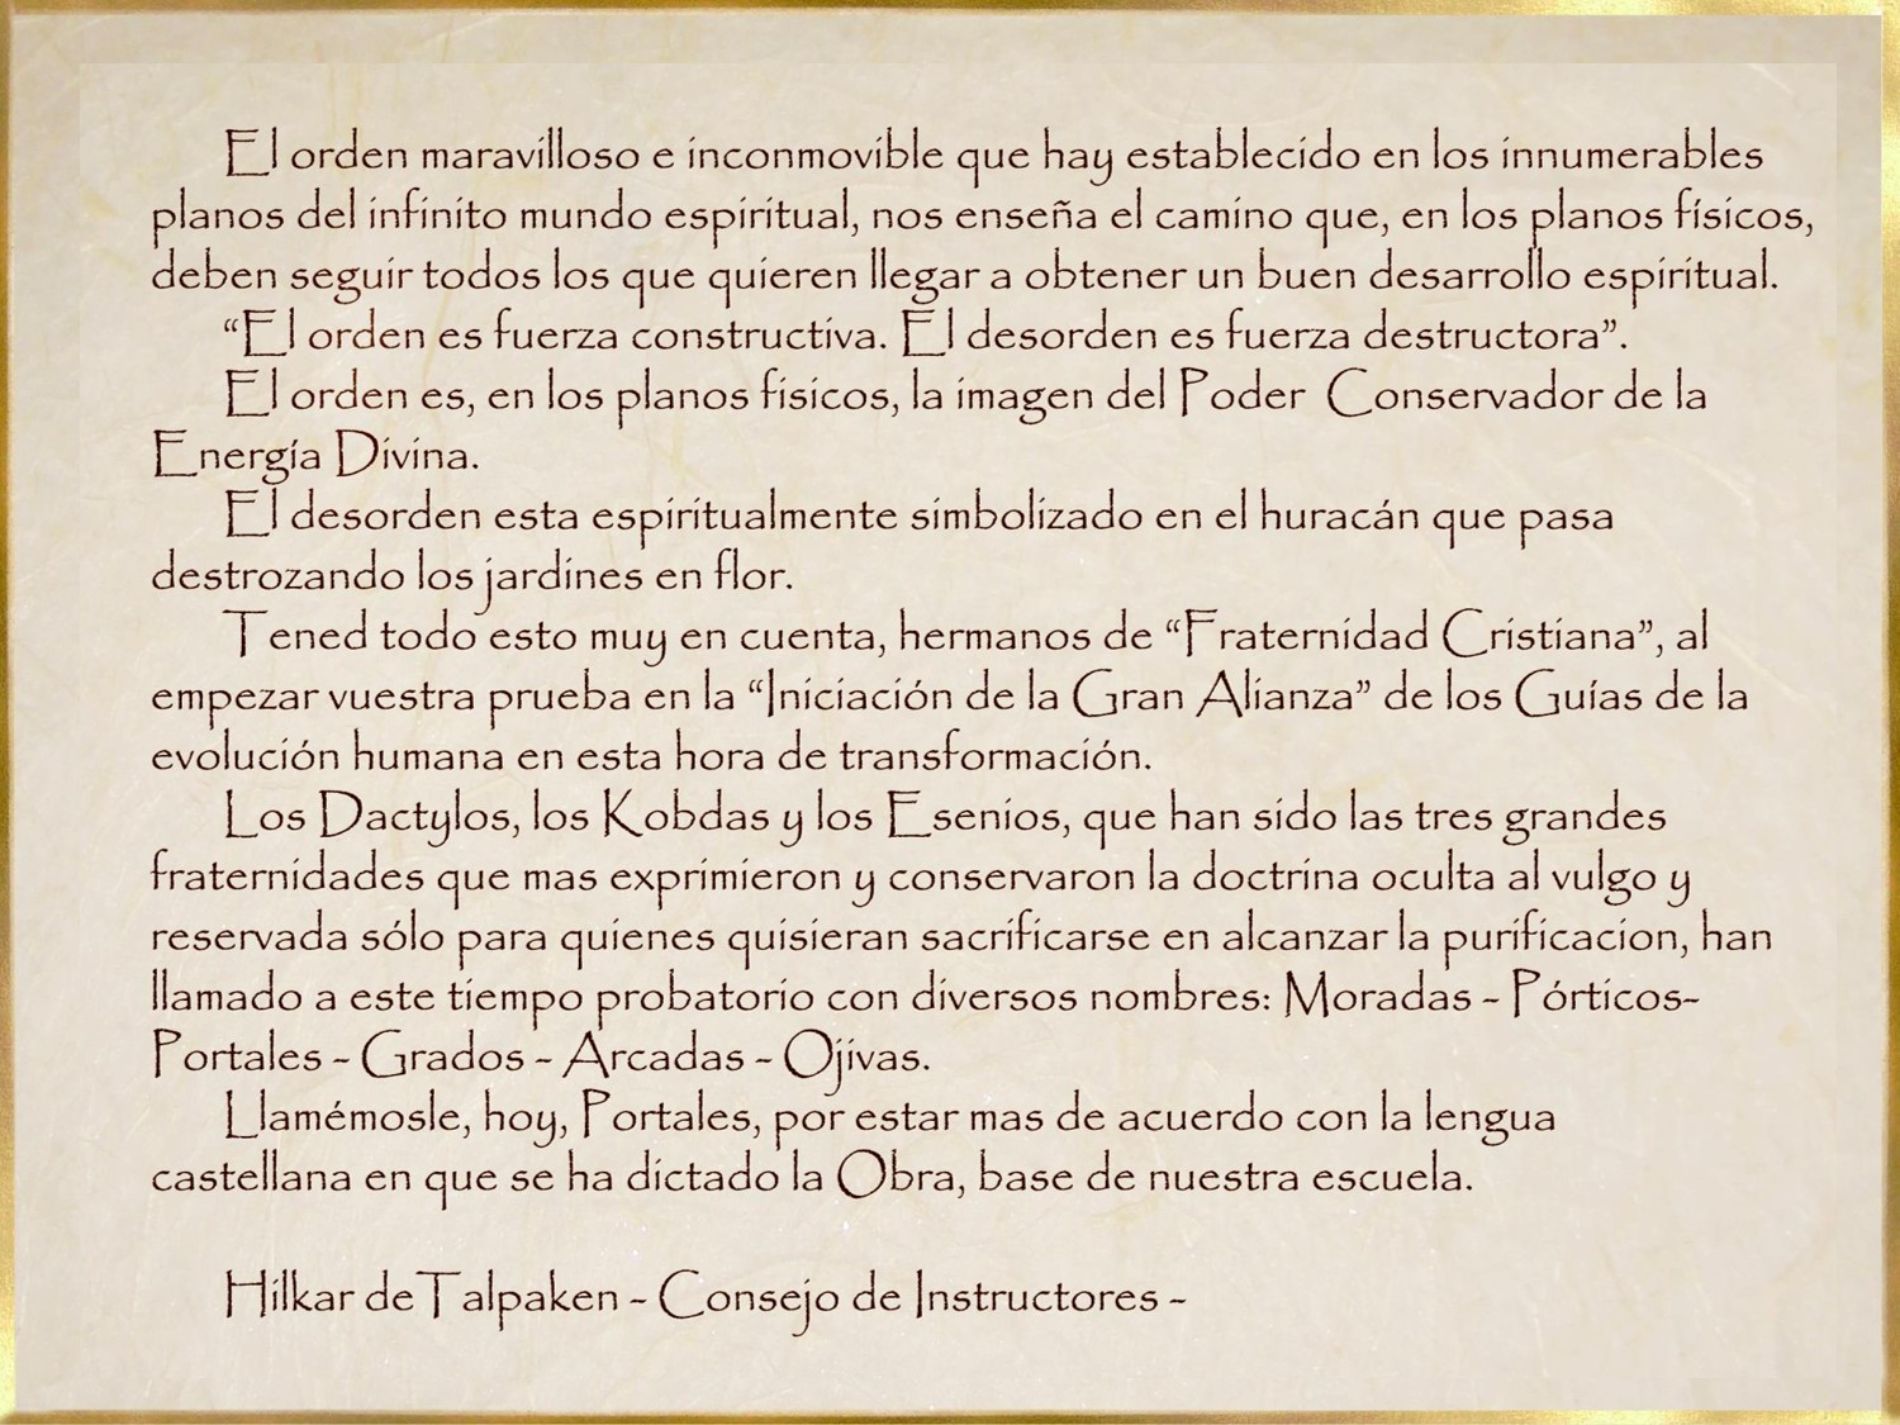 El orden maravilloso e inconmovible que hay establecido en los innumerables
planos del infinito mundo espiritual, nos enseña el camino que, en los planos físicos,
deben seguir todos los que quieren llegar a obtener un buen desarrollo espiritual.
“El orden es fuerza constructiva. El desorden es fuerza destructora”.
El orden es, en los planos fisicos, la imagen del Poder Conservador de la
Energía Divina.
El desorden esta espiritualmente simbolizado en el huracán que pasa
destrozando los jardines en flor.
Tened todo esto muy en cuenta, hermanos de “Fraternidad Cristiana”, al
empezar vuestra prueba en la “Iniciación de la Gran Alianza” de los Guías de la
evolución humana en esta hora de transformación.
Los Dactylos, los Kobdas y los Esenios, que han sido las tres grandes
fraternidades que mas exprimieron y conservaron la doctrina oculta al vulgo y
reservada sólo para quienes quisieran sacrificarse en alcanzar la purificacion, han
llamado a este tiempo probatorio con diversos nombres: Moradas - Pórticos-
Portales - Grados - Arcadas - Ojivas.
Llamémosle, hoy, Portales, por estar mas de acuerdo con la lengua
castellana en que se ha dictado la Obra, base de nuestra escuela.
Hilkar de Talpaken - Consejo de Instructores -